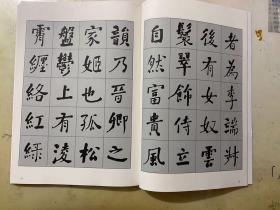 者為李端叔
後有女奴雲
鬟翠飾侍立
自然富貴風
韻乃晉卿之
家姬也孤松
盤鬱上有淩
霄纏絡紅綠